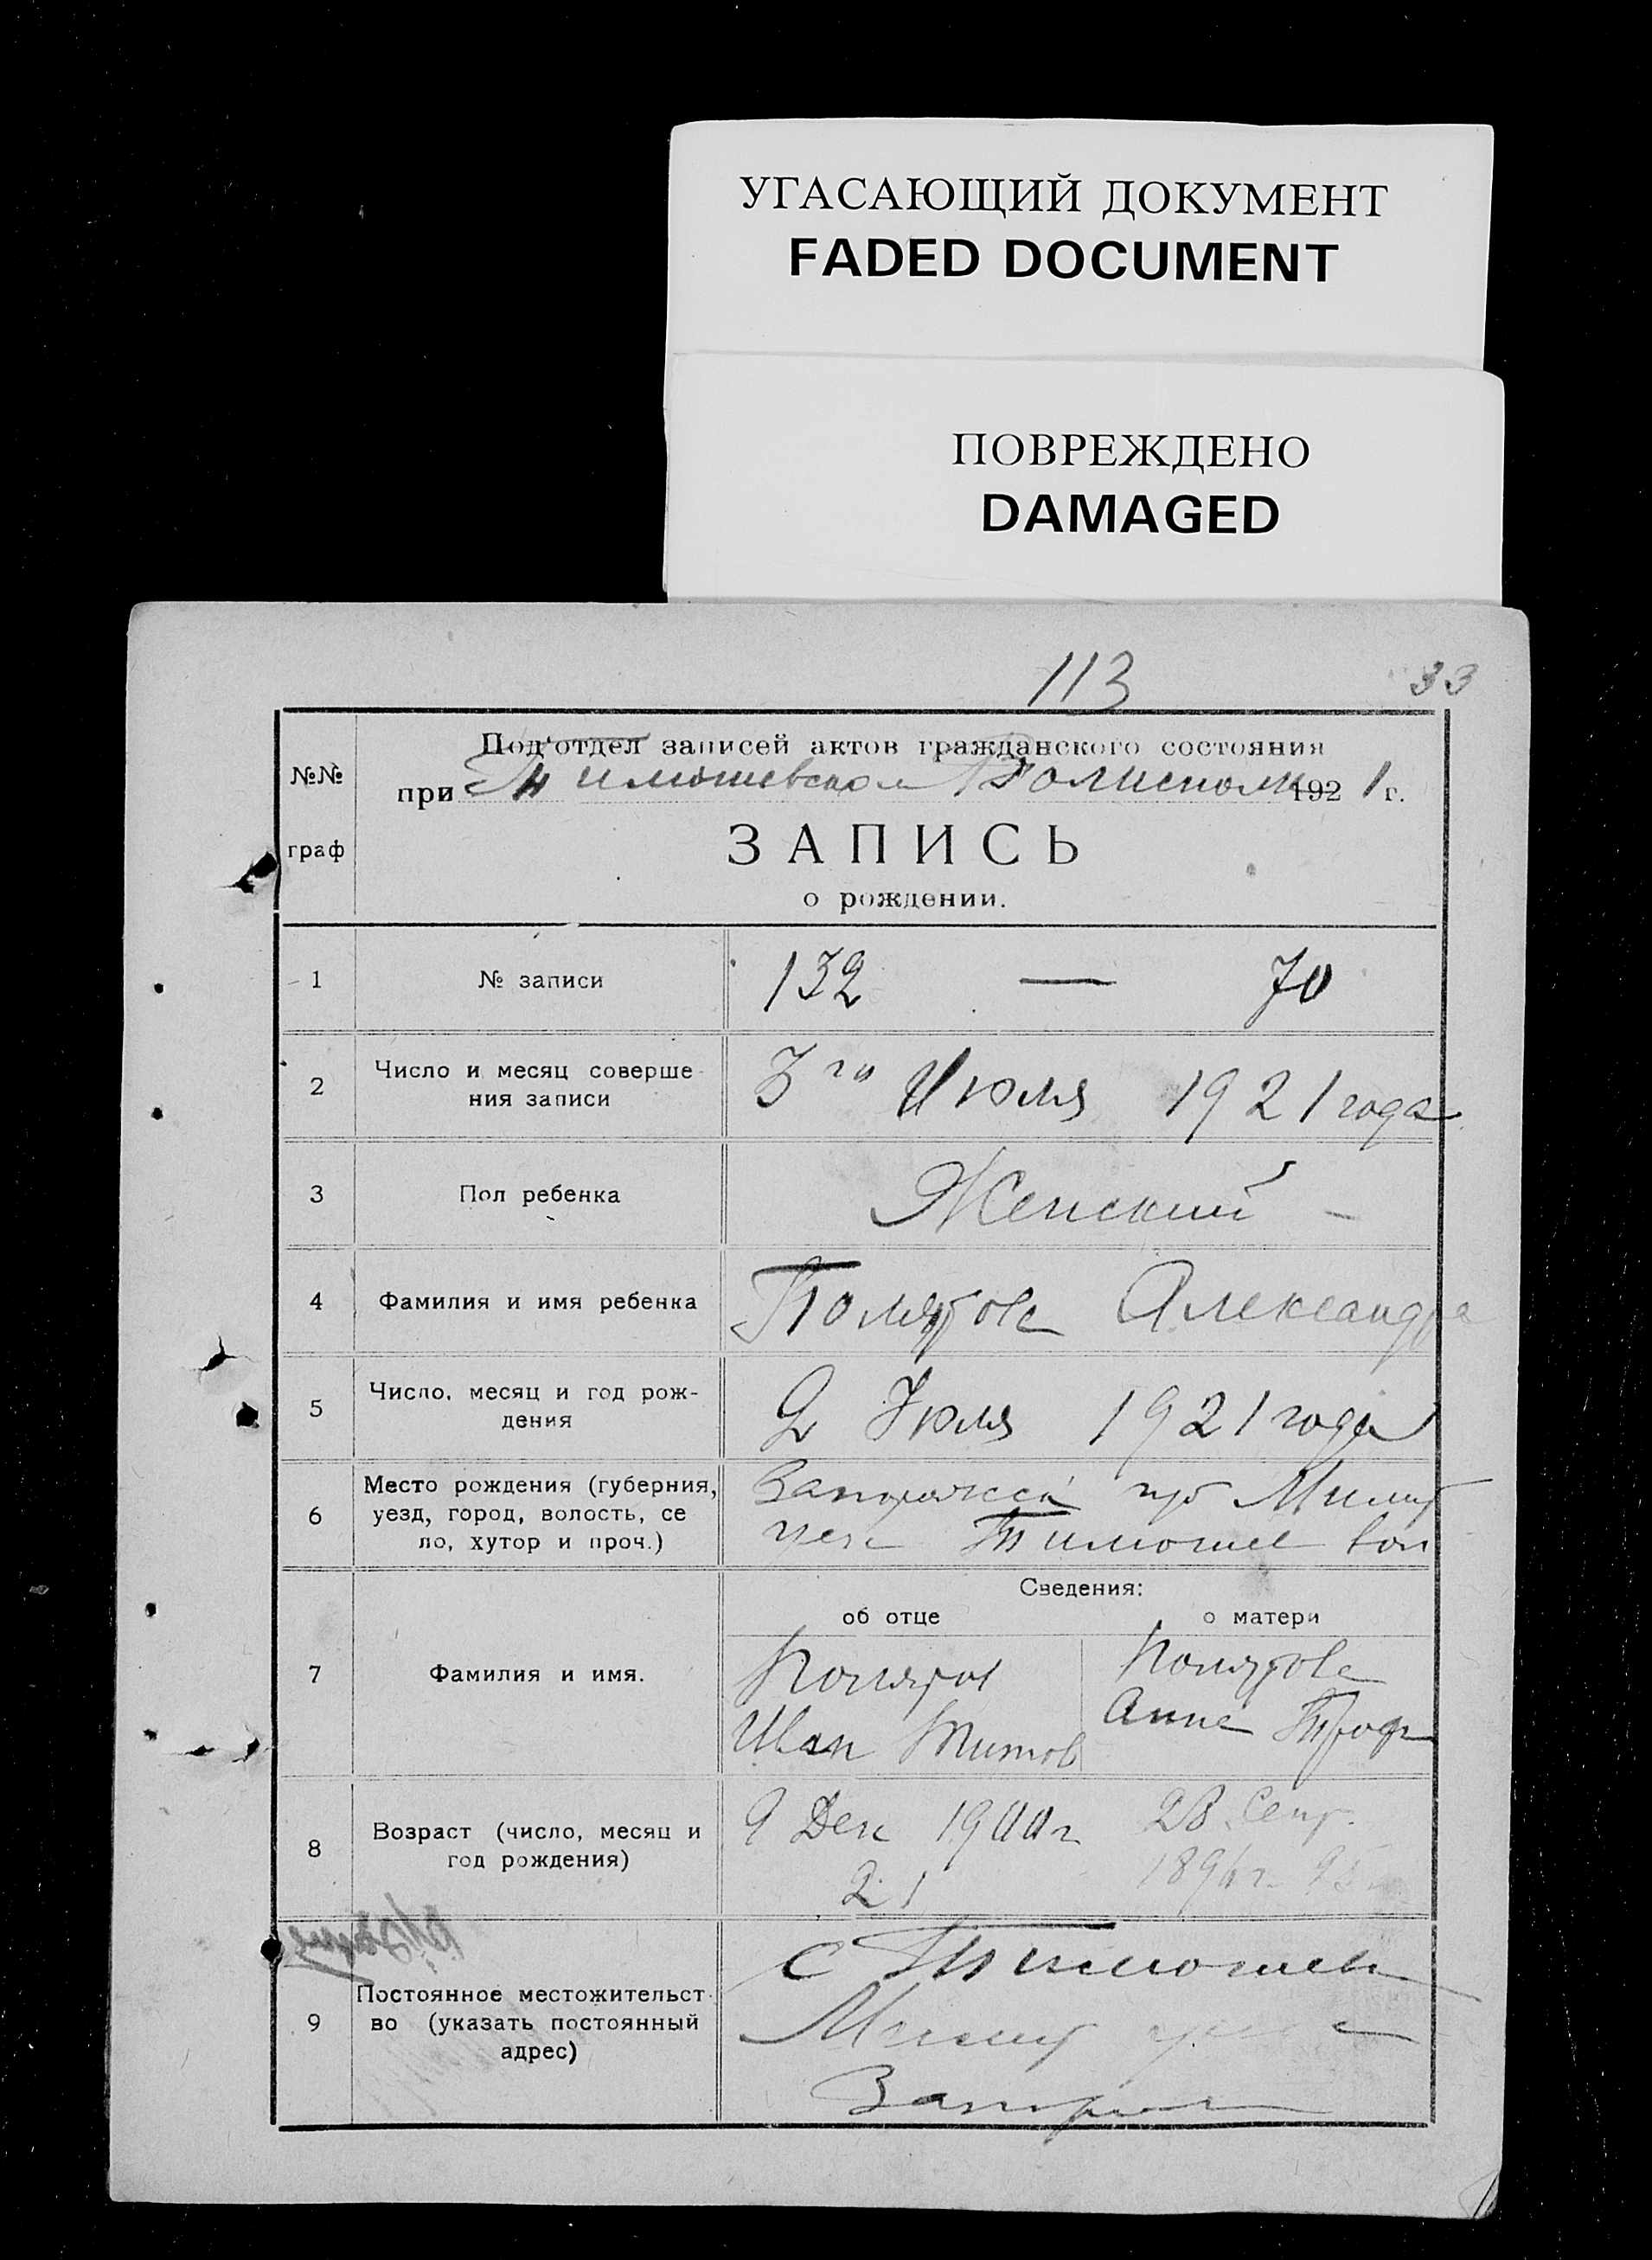 УГАСАЮЩИЙ ДОКУМЕНТ
FADED DOCUMENT
ПОВРЕЖДЕНО
DAMAGED
113
33
№№
граф
Под'отдел записей актов гражданского состояния
при Тимошевском Волисполк 1921 г.
ЗАПИСЬ
о рождении.
1
№ записи
132 — 70
2
Число и месяц соверше
ния записи
3го Июля 1921 года
3
Пол ребенка
Женский
4
Фамилия и имя ребенка
Александра
5
Число, месяц и год рож-
дения
2 Июля 1921 года
6
Место рождения (губерния,
уезд, город, волость, се
ло, хутор и проч.)
Запорожск губ Мелит
уезд Тимоше вол
Сведения:
об отце
о матери
7
Фамилия и имя.
Иван Титов
Анна Троф
8
Возраст (число, месяц и
год рождения)
9 Дек 1900 г
21
28 Сент.
1896 г.
9
Постоянное местожительст
во (указать постоянный
адрес)
с Тимошев
Мелит уезда
Запор